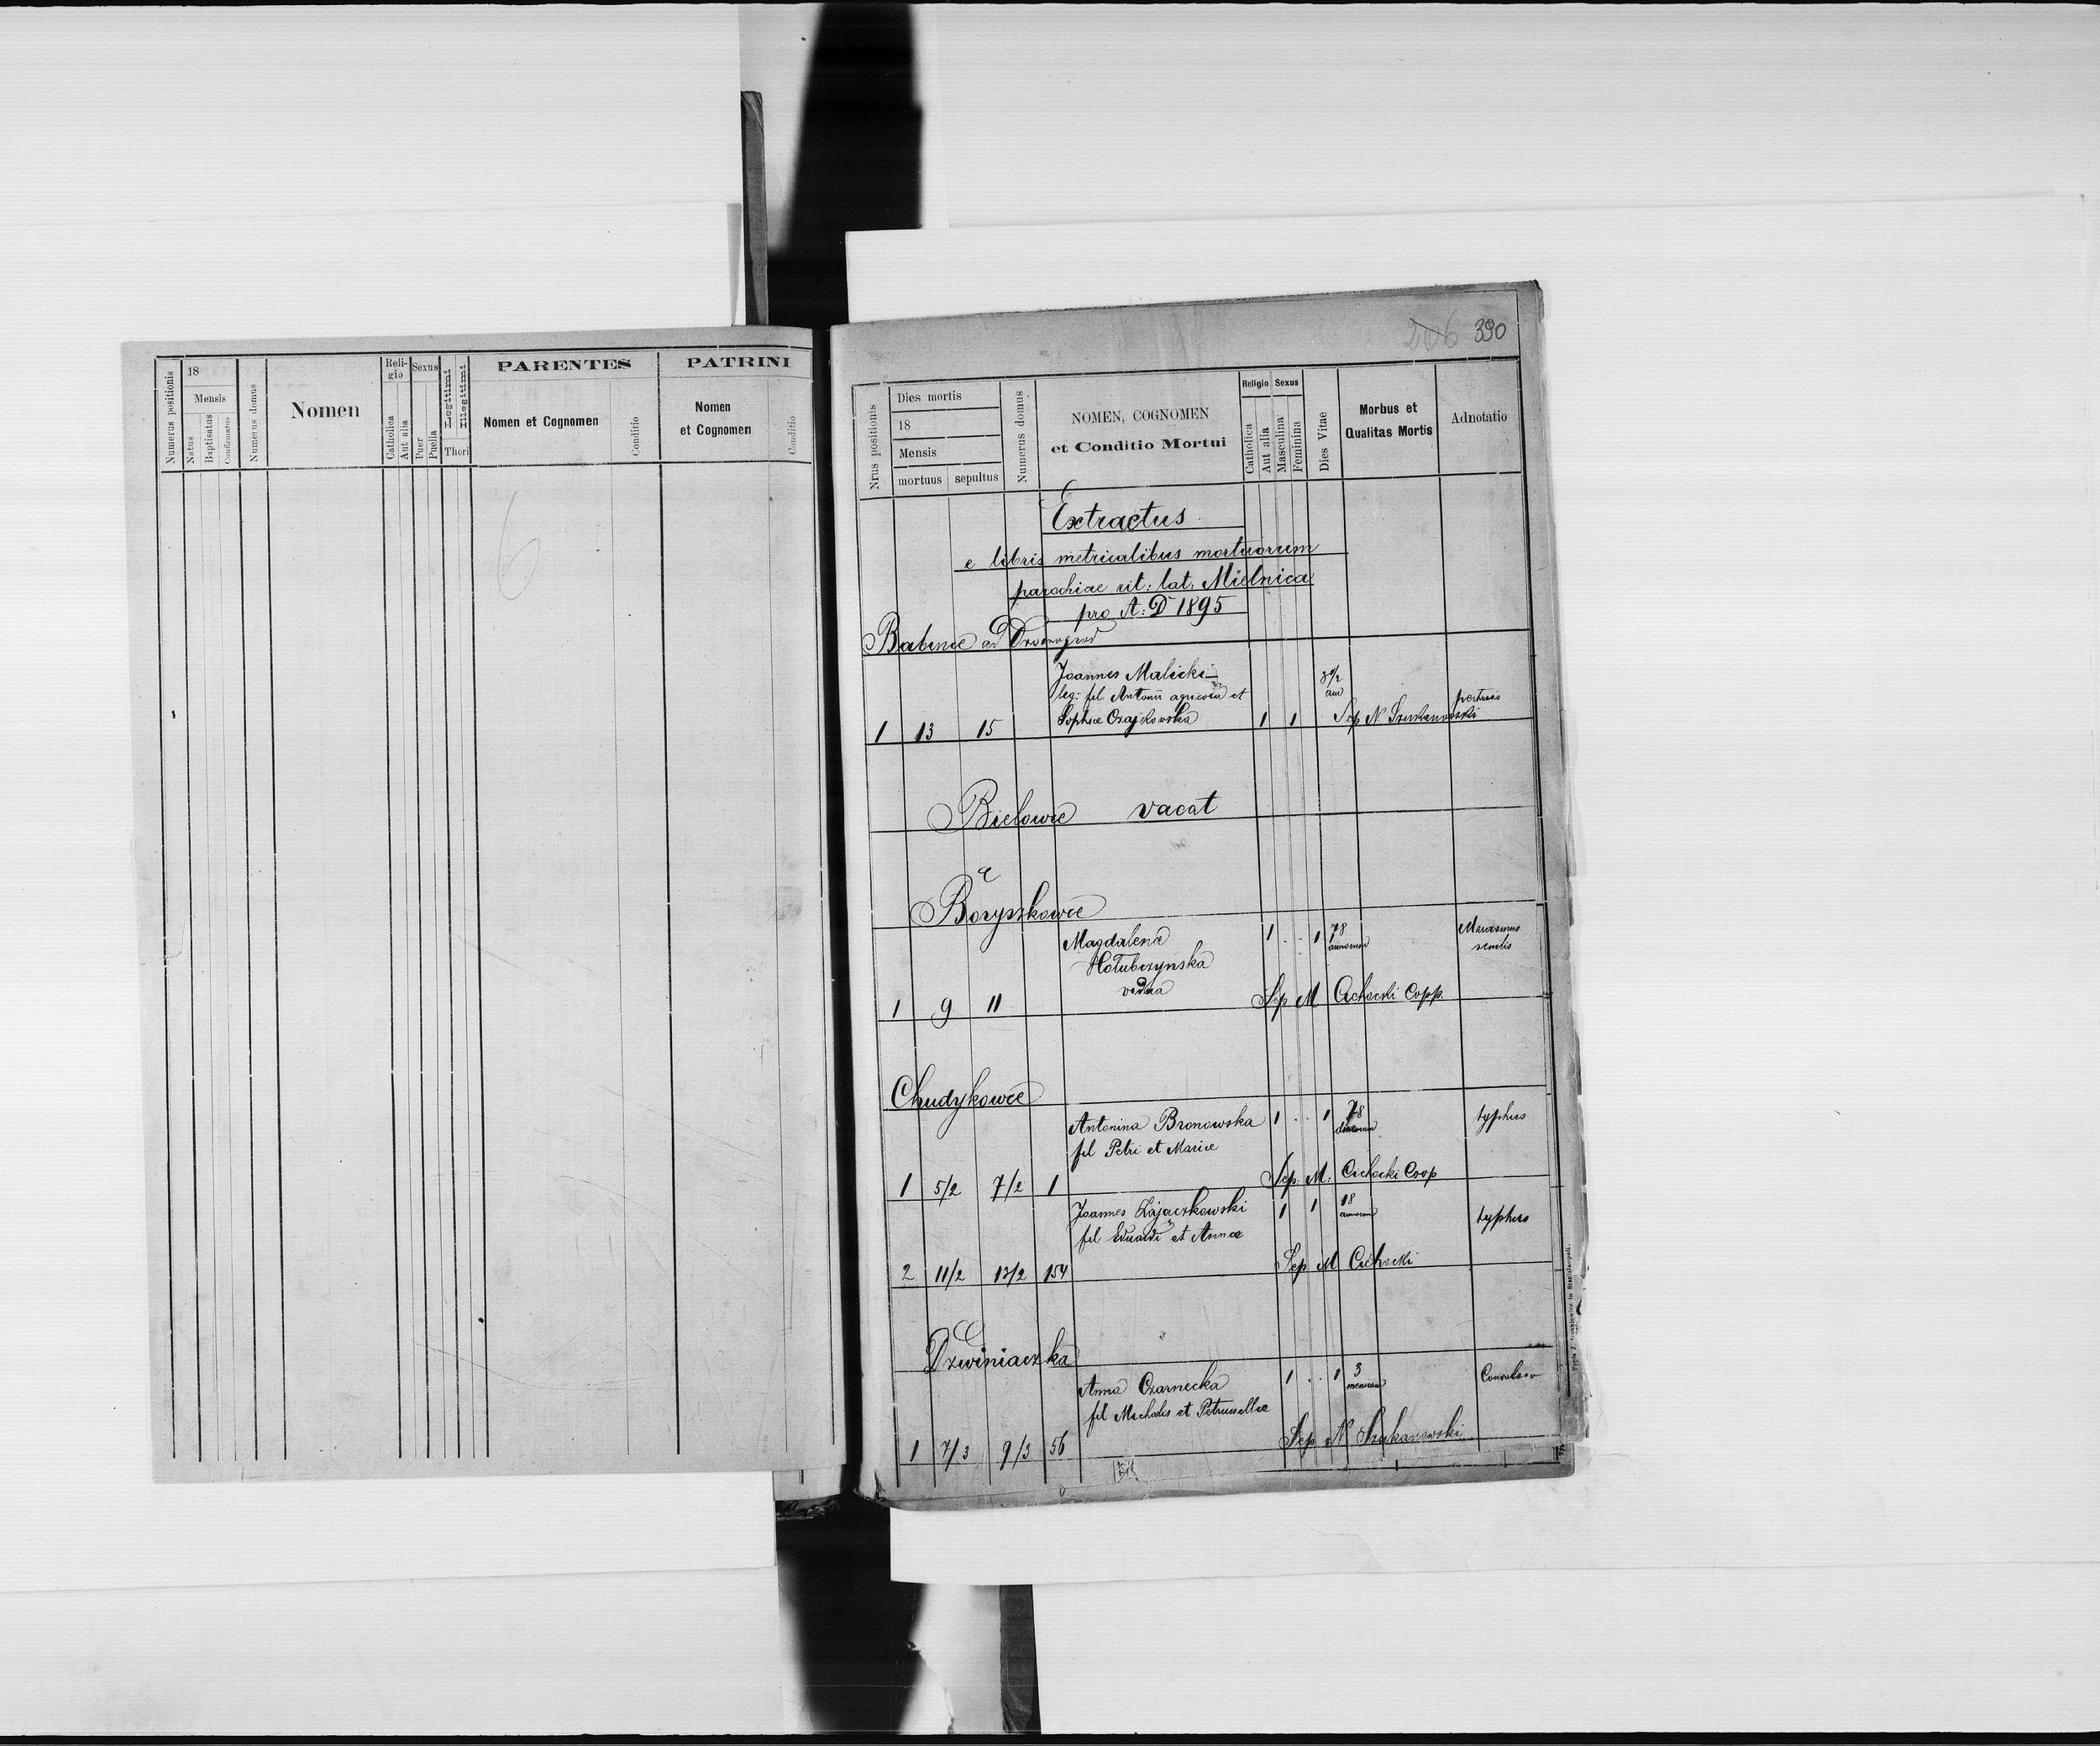 Numerus positionis
18
Mensis
Natus
Baptisatus
Confirmatus
Numerus domus
Nomen
Religio
Catholica
Aut alia
Sexus
Puer
Puella
Legitimi
Illegitimi
Thori
PARENTES
Nomen et Cognomen
Conditio
PATRINI
Nomen
et Cognomen
Conditio
6
206 390
Nrus positionis
Dies mortis
18
Mensis
mortuus sepultus
Numerus domus
NOMEN, COGNOMEN
et Conditio Mortui
Religio Sexus
Catholica
Aut alia
Masculina
Feminina
Dies Vitae
Morbus et
Qualitas Mortis
Adnotatio
Extractus
e libris metricalibus mortuorum
parochiae rit: lat: Mielnica
pro A: D 1895
Babince ad
Joannes Malicki
leg: fil Antonii agricolae et
Sophiae Czajkowska
1 13 15 1 1 Sep N
Bielowce vacat
Boryszkowce
Magdalena 1 . . 1 78 Marasmus
Hołubczynska annorum senilis
vidua
1 9 11 Sep M Cichocki Copp.
Chudykowce
Antonina Bronowska 1 . . 1 78 typhus
fil Petri et Mariae
1 5/2 7/2 1 Sep. M: Cichocki Coop
Joannes Zajaczkowski 1 1 18 typhus
fil Eduardi et Annae annorum
2 11/2 13/2 154 Sep M Cichocki
Dzwiniaczka
Anna Czarnecka 1 . . 1 3 Convulsio
fil Michalis et Petrunellae mensium
1 7/3 9/3 56 Sep N Szukanowski